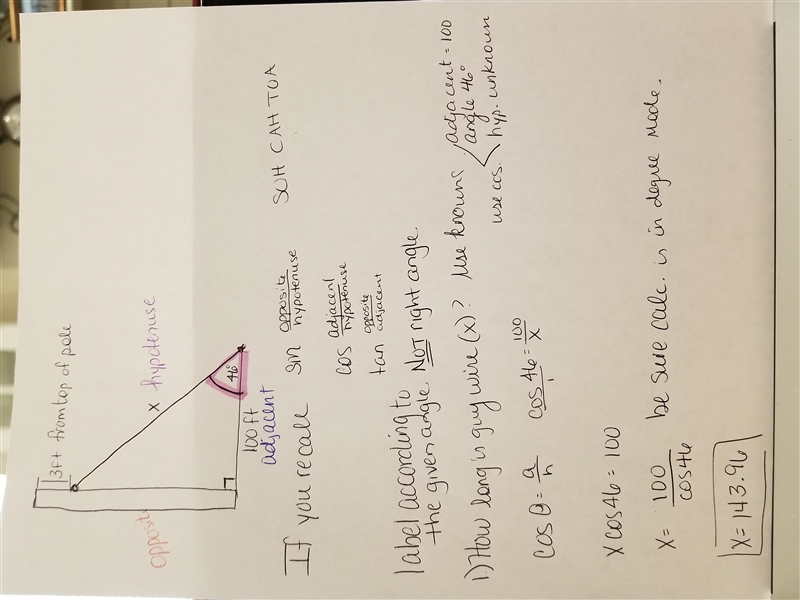 3ft from top of pole
opposit
x hypotenuse
46°
100 ft
adjacent
If you recall sin opposite/hypotenuse SOH CAH TOA
cos adjacent/hypotenuse
tan opposite/adjacent
label according to
the given angle. NOT right angle.
1) How long is guy wire (x)? Use knowns adjacent = 100
angle 46°
use cos. hyp. unknown
cos θ = a/h cos 46/1 = 100/x
x cos 46 = 100
x = 100/cos 46 be sure calc. is in degree mode.
x = 143.96